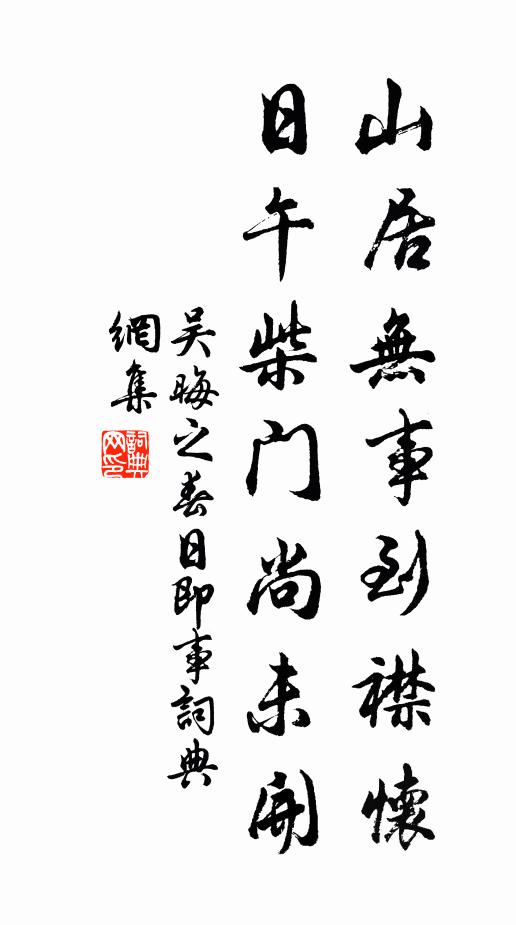 山居無事到襟懷
日午柴门尚未開
吴晦之春日即事詞典
網集
詞典网印